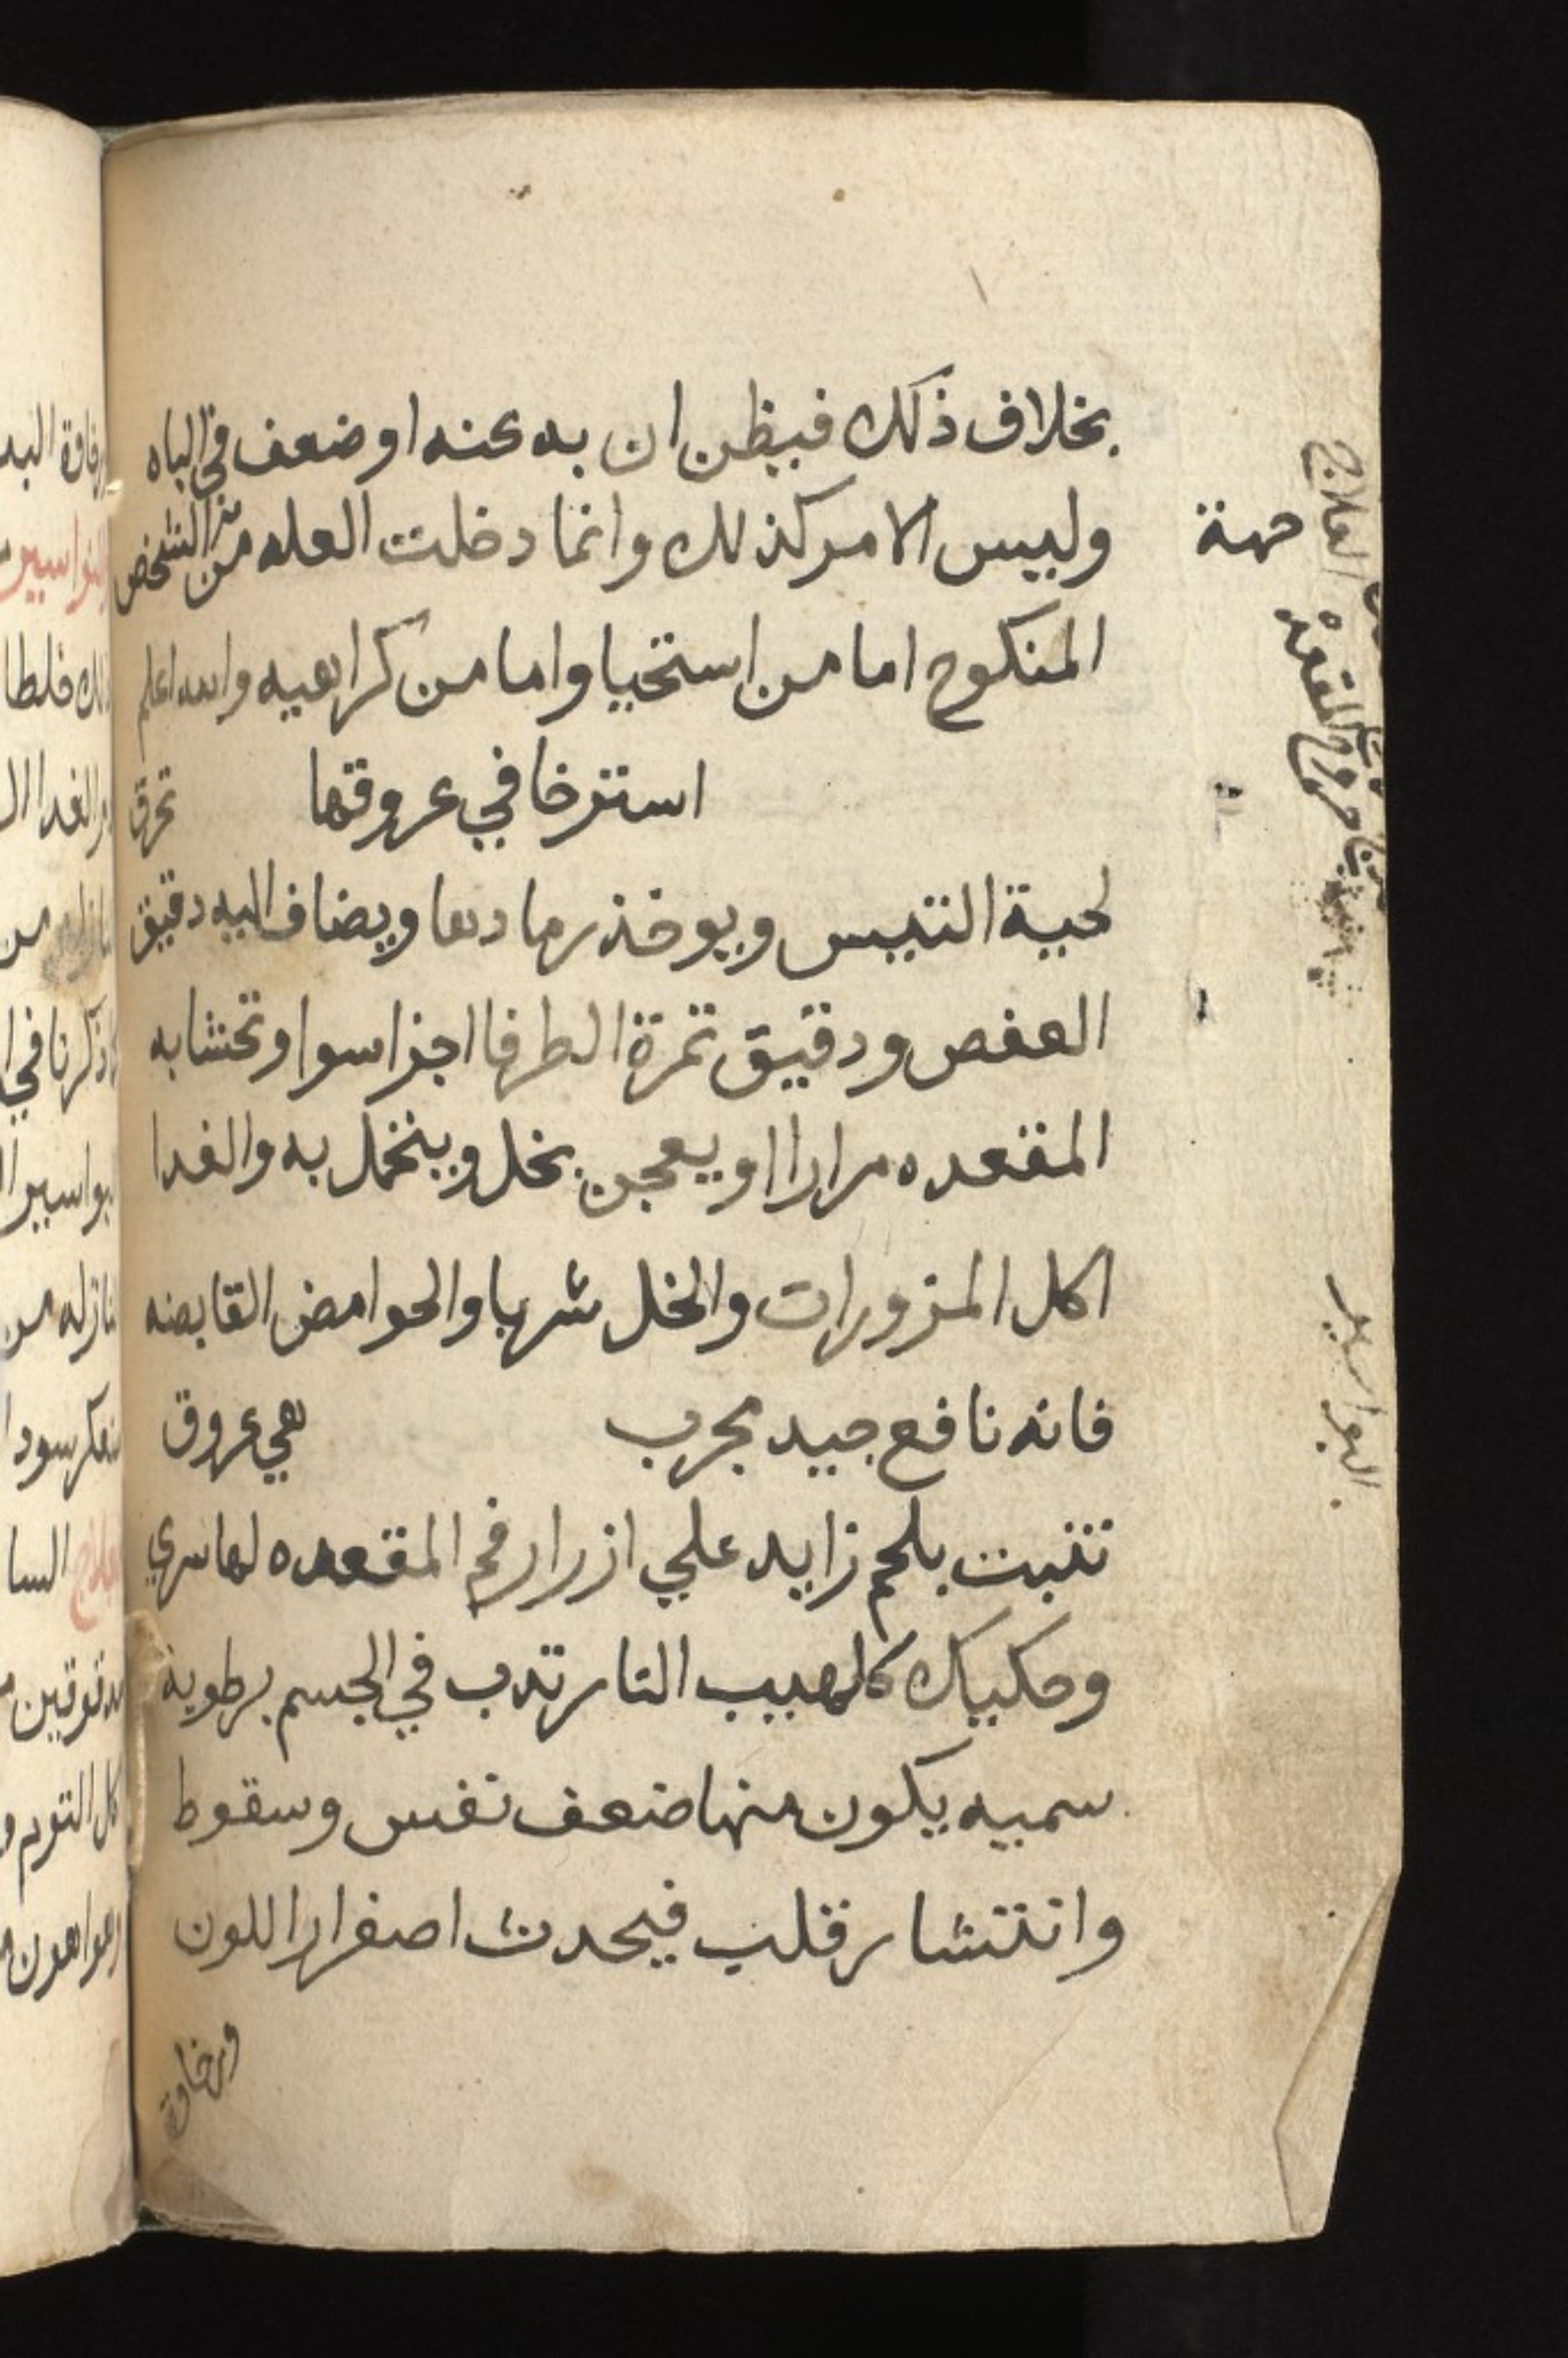 بخلاف ذلك فيظن ان به عنه او ضعف في الباه
وليس الامر كذلك وانما دخلت العله من الشخص
جهة
المنكوح اما من استحيا واما من كراهيه والله اعلم
استرخا في عروقها تحرق
لحية التيس ويوخذ رمادها ويضاف اليه دقيق
العفص ودقيق ثمرة الطرفا اجزا سوا وتحشا به
المقعده مرارا او يعجن بخل ويتحمل به والغدا
اكل المزورات والخل شربا والحوامض القابضه
فانه نافع جيد مجرب هي عروق
تنبت بلحم زايد علي ازرار فم المقعده لها سري
وحكيك كلهيب النار تدب في الجسم برطوبة
سميه يكون منها ضعف نفس وسقوط
وانتشار قلب فيحدث اصفرار اللون
ورخاوة
العلاج
خروج المقعدة
البواسير